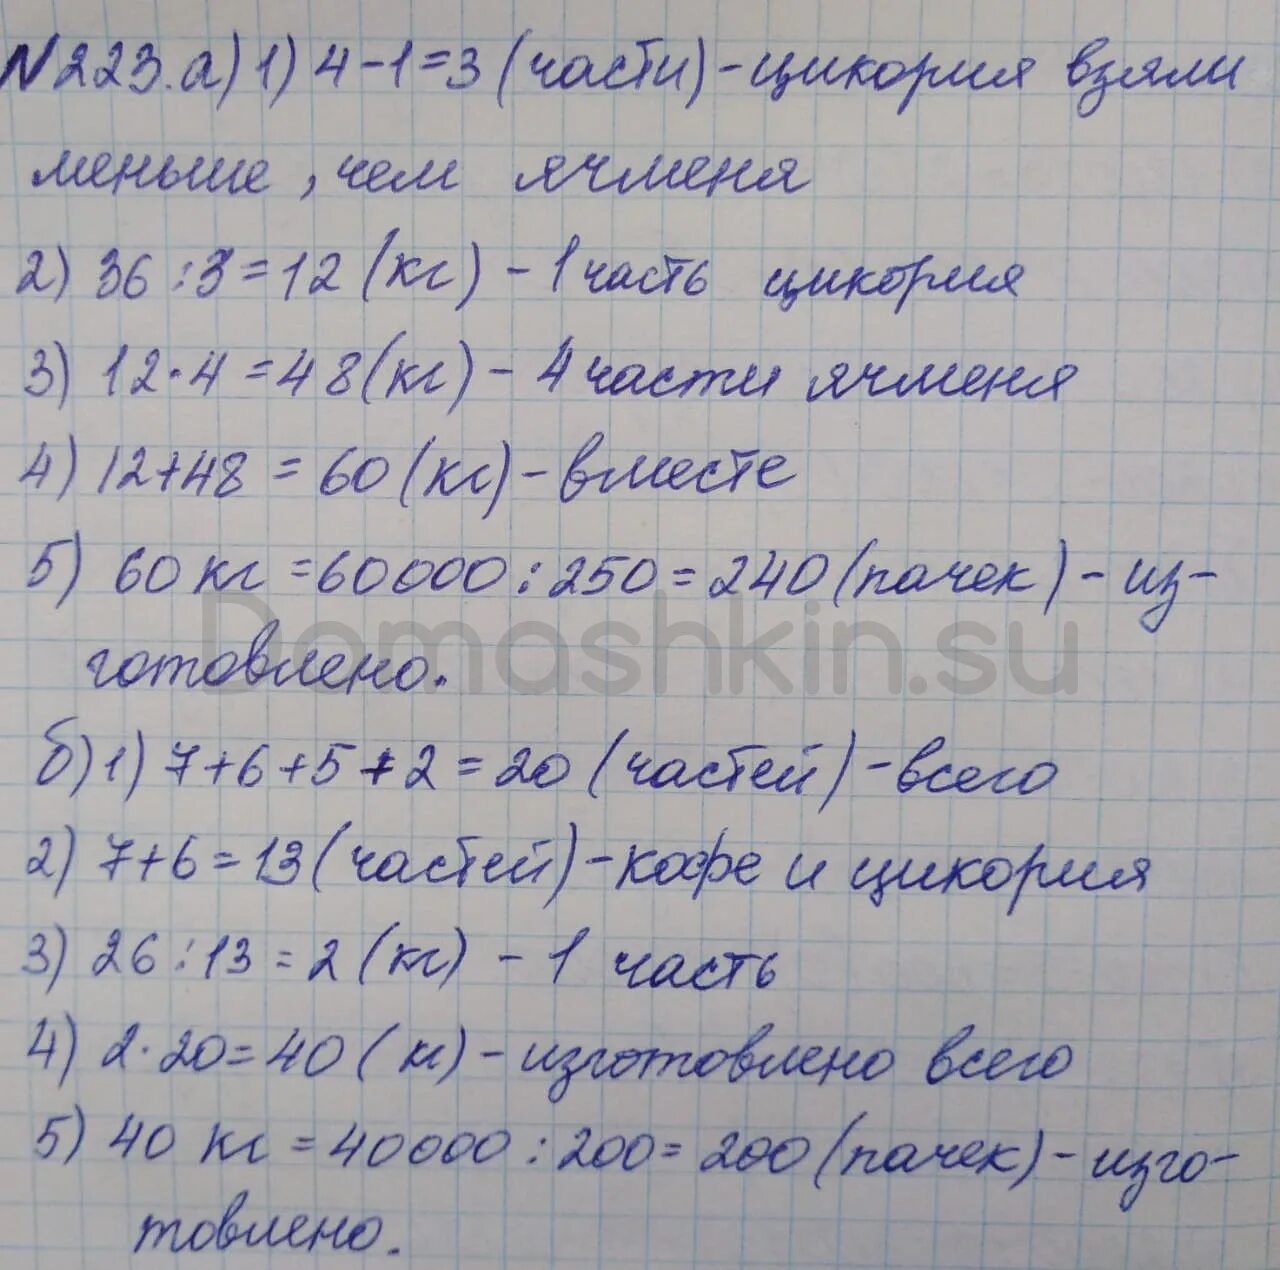 N223. а) 1) 4-1=3 (части) - цикория взяли
меньше, чем ячменя
2) 36:3=12 (кг) - 1 часть цикория
3) 12·4=48 (кг) - 4 части ячменя
4) 12+48=60 (кг) - вместе
5) 60 кг=60000:250=240 (пачек) - из-
готовлено.
Domashkin.su
б) 1) 7+6+5+2=20 (частей) - всего
2) 7+6=13 (частей) - кофе и цикория
3) 26:13=2 (кг) - 1 часть
4) 2·20=40 (кг) - изготовлено всего
5) 40 кг=40000:200=200 (пачек) - изго-
товлено.